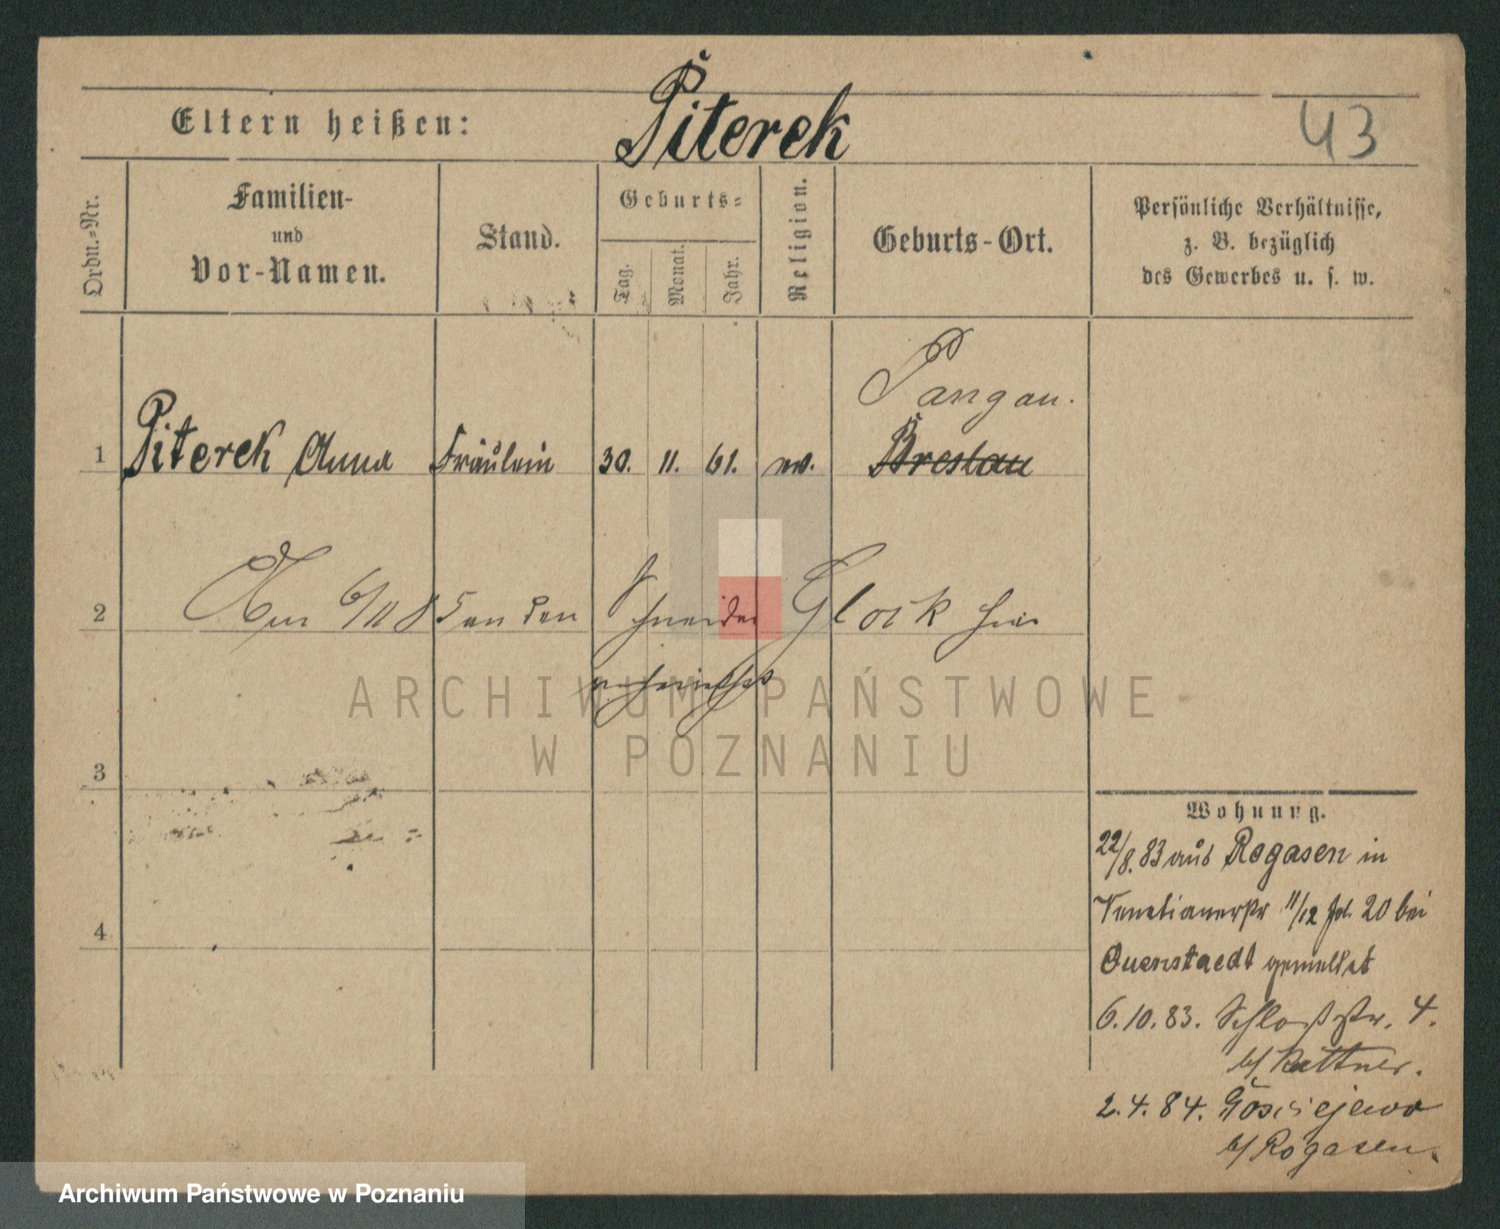 Piterek
43
Eltern heißen:
Ordn.-Nr.
Familien-
und
Vor-Namen.
Stand.
Geburts-
Tag.
Monat.
Jahr.
Religion.
Geburts-Ort.
Persönliche Verhältnisse,
z. B. bezüglich
des Gewerbes u. s. w.
Pangau.
1 Piterek Anna Fräulein 30. 11. 61. ev. Breslau
2 Am 6/11 85 an den Schneider Glock hier
verheirathet
ARCHIWUM PAŃSTWOWE
W POZNANIU
3
4
Wohnung.
22/8. 83 aus Rogasen in
Venetianerstr 11/12 bei
Quenstaedt gemeldet
6.10.83. Schloßstr. 4.
b/ Kattner.
2.4.84. Gosciejewo
b/ Rogasen.
Archiwum Państwowe w Poznaniu